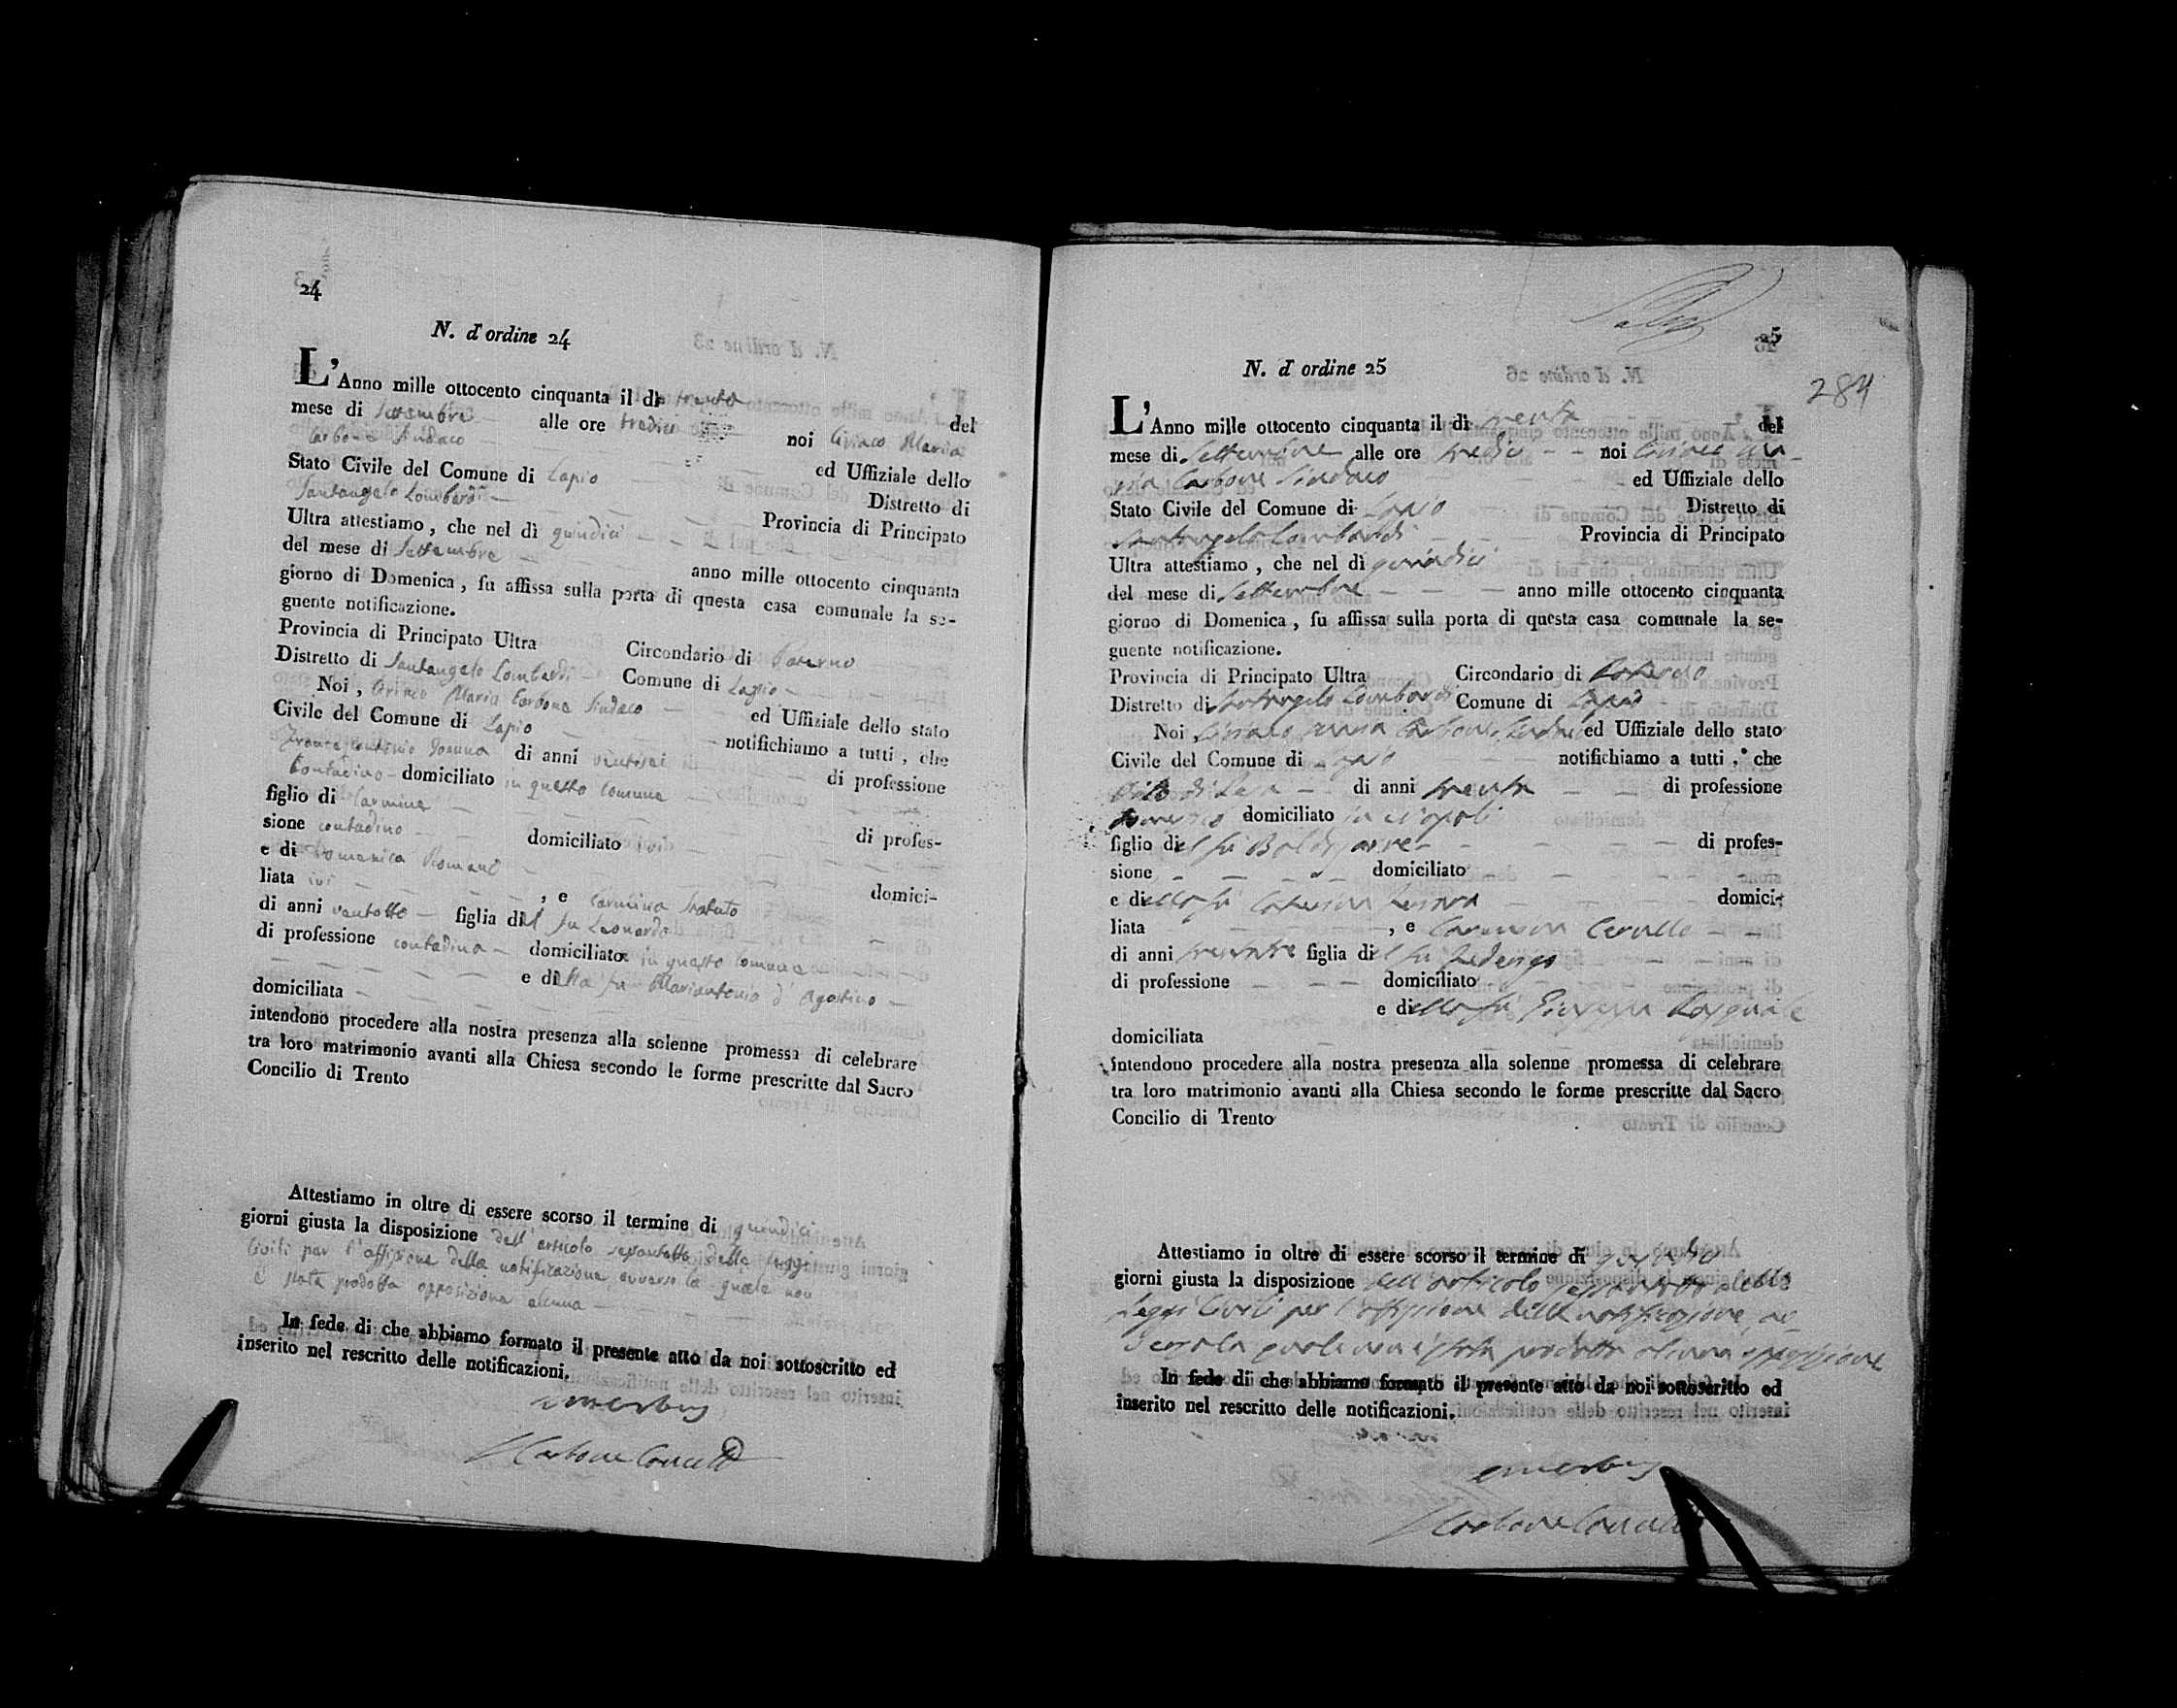 24
N. d'ordine 24
L'Anno mille ottocento cinquanta il dì trenta del
mese di Settembre alle ore tredici noi Ciriaco Maria
Carbone Sindaco ed Uffiziale dello
Stato Civile del Comune di Lapio Distretto di
Santangelo Lombardi Provincia di Principato
Ultra attestiamo, che nel dì quindici
del mese di Settembre anno mille ottocento cinquanta
giorno di Domenica, fu affissa sulla porta di questa casa comunale la se-
guente notificazione.
Provincia di Principato Ultra Circondario di Paterno
Distretto di Santangelo Lombardi Comune di Lapio
Noi, Ciriaco Maria Carbone Sindaco ed Uffiziale dello stato
Civile del Comune di Lapio notifichiamo a tutti, che
di anni ventisei di professione
Contadino domiciliato in questo Comune
figlio di Carmine di profes-
sione contadino domiciliato ivi
e di Domenica Romano domici-
liata ivi, e Carmina
di anni ventotto figlia del fu Leonardo
di professione contadina domiciliata in questo Comune
e della fu Mariantonia d'Agostino
domiciliata
intendono procedere alla nostra presenza alla solenne promessa di celebrare
tra loro matrimonio avanti alla Chiesa secondo le forme prescritte dal Sacro
Concilio di Trento
Attestiamo in oltre di essere scorso il termine di quindici
giorni giusta la disposizione dell'articolo sessantotto delle leggi
Civili per l'affissione della notificazione, avverso la quale non
è stata prodotta opposizione alcuna
In fede di che abbiamo formato il presente atto da noi sottoscritto ed
inserito nel rescritto delle notificazioni.
Carbone
25
284
N. d'ordine 25
L'Anno mille ottocento cinquanta il dì trenta del
mese di Settembre alle ore tredici noi Ciriaco Ma-
ria Carbone Sindaco ed Uffiziale dello
Stato Civile del Comune di Lapio Distretto di
Santangelo Lombardi Provincia di Principato
Ultra attestiamo, che nel dì quindici
del mese di Settembre anno mille ottocento cinquanta
giorno di Domenica, fu affissa sulla porta di questa casa comunale la se-
guente notificazione.
Provincia di Principato Ultra Circondario di Paterno
Distretto di Santangelo Lombardi Comune di Lapio
Noi, Ciriaco Maria Carbone Sindaco ed Uffiziale dello stato
Civile del Comune di Lapio notifichiamo a tutti, che
di anni trenta di professione
domestico domiciliato in Napoli
figlio del fu Baldassarre di profes-
sione domiciliato
e della fu Caterina domici-
liata, e Carmina Cerullo
di anni trentatre figlia del fu Federigo
di professione domiciliato
e della fu Giuseppa Pasquale
domiciliata
intendono procedere alla nostra presenza alla solenne promessa di celebrare
tra loro matrimonio avanti alla Chiesa secondo le forme prescritte dal Sacro
Concilio di Trento
Attestiamo in oltre di essere scorso il termine di quindici
giorni giusta la disposizione dell'articolo sessantotto delle
Leggi Civili per l'affissione della notificazione, av-
verso la quale non è stata prodotta alcuna opposizione
In fede di che abbiamo formato il presente atto da noi sottoscritto ed
inserito nel rescritto delle notificazioni.
Carbone